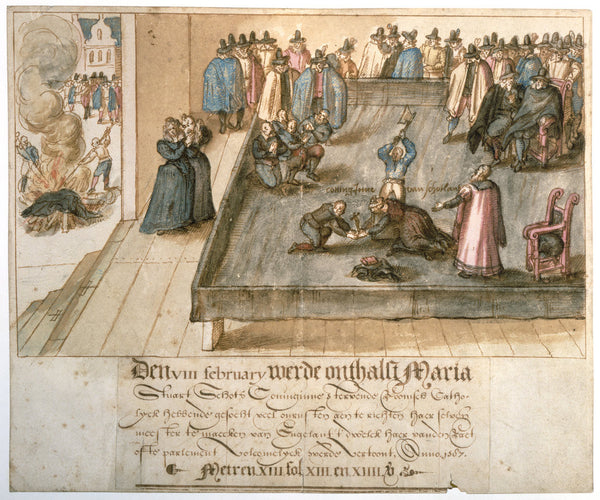 coninginne van schotlant
Den VIII february werde onthalst Maria
Stuart Schots Coninginne stervende Romisch Catho-
lyck Hebbende gesocht veel onrusten aen te richten Haer selven
meester te maecken van Engelant twelck Haer vanden Raet
ofte parlement volcomelyck werde verthoont, Anno 1587.
Meteren XIII fol XIII en XIIII